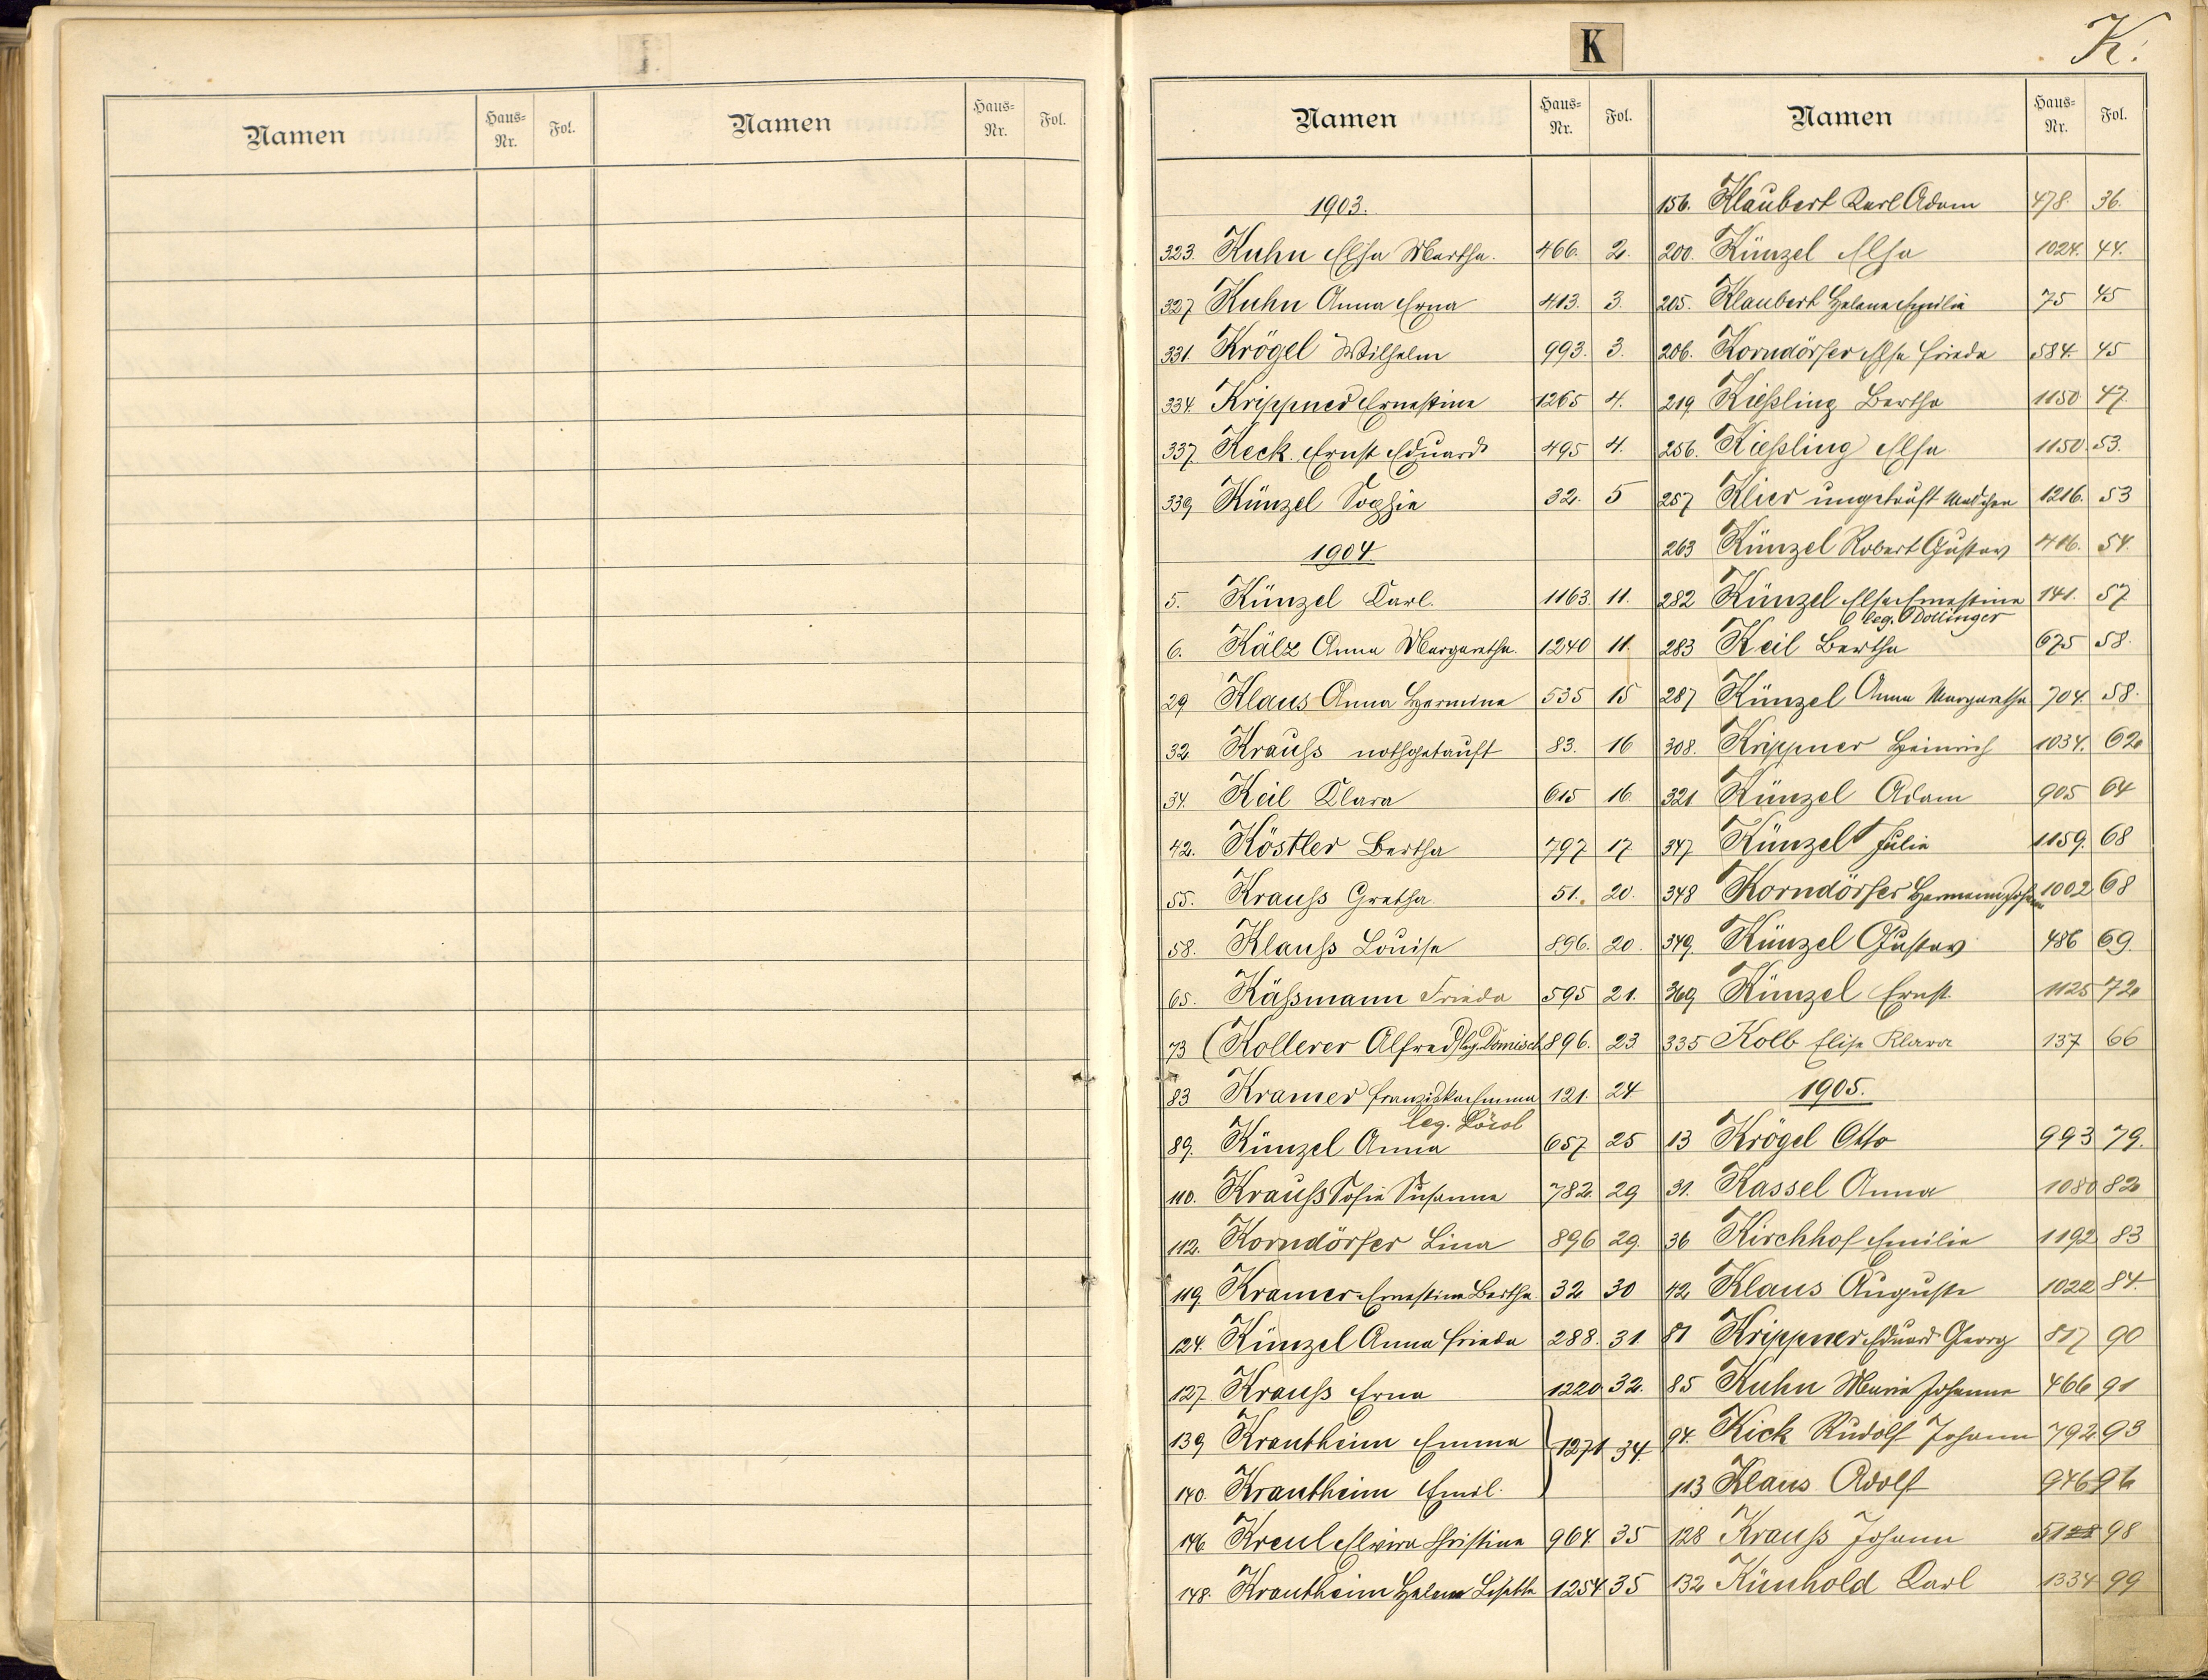 I
Namen Haus-Nr. Fol. Namen Haus-Nr. Fol.
K
K.
Namen Haus-Nr. Fol.
1903.
323. Kuhn Elsa Martha. 466. 2.
327 Kuhn Anna Erna 413. 3.
331. Krögel Wilhelm 993. 3.
334. Krippner Ernestine 1265 4.
337. Keck Ernst Eduard 495 4.
339 Künzel Sophie 32. 5
1904
5. Künzel Karl. 1163. 11.
6. Kälz Anna Margaretha. 1240 11.
29 Klaus Anna Hermine 535 15
32. Krauß nothgetauft 83. 16
34. Keil Klara 615 16.
42. Köstler Bertha 797 17
55. Krauß Gretha. 51. 20.
58. Klauß Louise 896. 20.
65. Käßmann Frieda 595 21.
73 (Kollerer Alfred) leg. Dömisch 896. 23
83 Kramer Franziska Emma 121. 24
leg.
89. Künzel Anna 657 25
110. Krauß Sofie Susanna 782. 29
112. Korndörfer Lina 896 29.
119. Kramer Ernestine Bertha 32 30
124. Künzel Anna Frieda 288. 31
127. Krauß Erna 1220 32.
139 Krautheim Emma 1271 34.
140. Krautheim Emil.
146. Kreul Elvira Christine 964. 35
148. Krautheim Helene Lisette 1254 35
Namen Haus-Nr. Fol.
156. Klaubert Karl Adam 478. 36.
200. Künzel Elsa 1024. 44.
205. Klaubert Helene Emilie 75 45
206. Korndörfer Elsa Frieda 584. 45
219 Kießling Bertha 1150 47.
256. Kießling Elsa 1150. 53.
257 Klier ungetauft Mädchen 1216. 53
263 Künzel Robert Gustav 416. 54.
282 Künzel Elsa Ernestine 141. 57
leg. Dollinger
283 Keil Bertha 675 58.
287 Künzel Anna Margaretha 704. 58.
308. Krippner Heinrich 1034. 62
321 Künzel Adam 905 64
347 Künzel Julie 1159. 68
348 Korndörfer Hermann Johann 1002 68
349. Künzel Gustav 486 69.
369 Künzel Ernst. 1125 72
335 Kolb Elise Klara 137 66
1905.
13 Krögel Otto 993 79.
31. Kassel Anna 1080 82
36 Kirchhof Emilie 1192 83
42 Klaus Auguste 1022 84.
81 Krippner Eduard Georg 817 90
85 Kuhn Maria Johanna 466 91
94. Kick Rudolf Johann 792 93
113 Klaus Adolf 946 96
128 Krauß Johann 98
132 Künhold Karl 1334 99